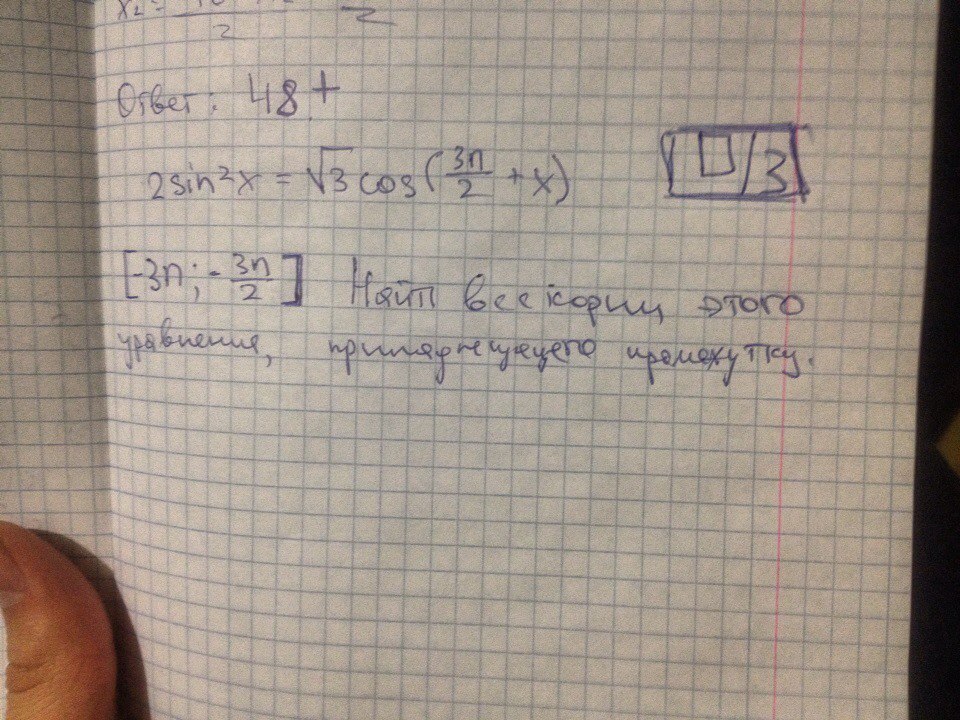 2
2
Ответ: 48 +
2sin²x = √3 cos(3π/2 + x)
3
[-3π; -3π/2] Найти все корни этого
уравнения, принадлежащего промежутку.